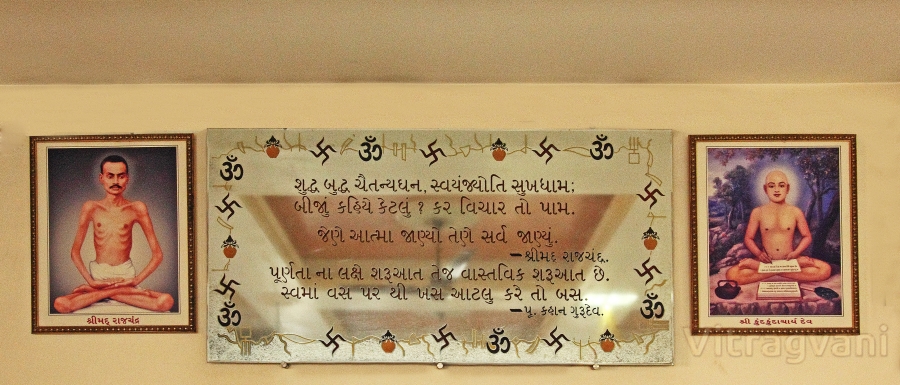 શુદ્ધ બુદ્ધ ચૈતન્યઘન, સ્વયંજ્યોતિ સુખધામ;
બીજું કહિયે કેટલું ? કર વિચાર તો પામ.
જેણે આત્મા જાણ્યો તેણે સર્વ જાણ્યું.
—શ્રીમદ્ રાજચંદ્ર.
પૂર્ણતા ના લક્ષે શરૂઆત તેજ વાસ્તવિક શરૂઆત છે.
સ્વમાં વસ પર થી ખસ આટલુ કરે તો બસ.
—પૂ. કહાન ગુરૂદેવ.
શ્રીમદ્ રાજચંદ્ર
શ્રી કુંદકુંદાચાર્ય દેવ
Vitragvani